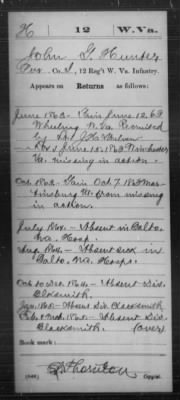 H | 12 | W.Va.
John G. Hunter
Pvt. Co. I, 12 Reg't W. Va. Infantry.
Appears on Returns as follows:
June 1863. Gain June 12, 63
Wheeling W. Va. Recruited
by
June 15, 1863 Winchester
Va. missing in action.
Oct. 1863. Gain Oct 7, 1863 Mar-
tinsburg from missing
in action.
July 1864. Absent in Balto.
Hosp.
Aug 1864. Absent sick in
Balto, Hosp.
Oct to Dec. 1864. Absent Div.
Blksmith.
Jan. 1865. Absent Div. Blacksmith
Absent Div.
Blacksmith. (over)
Book mark:
(546)
Thornton
Copyist.